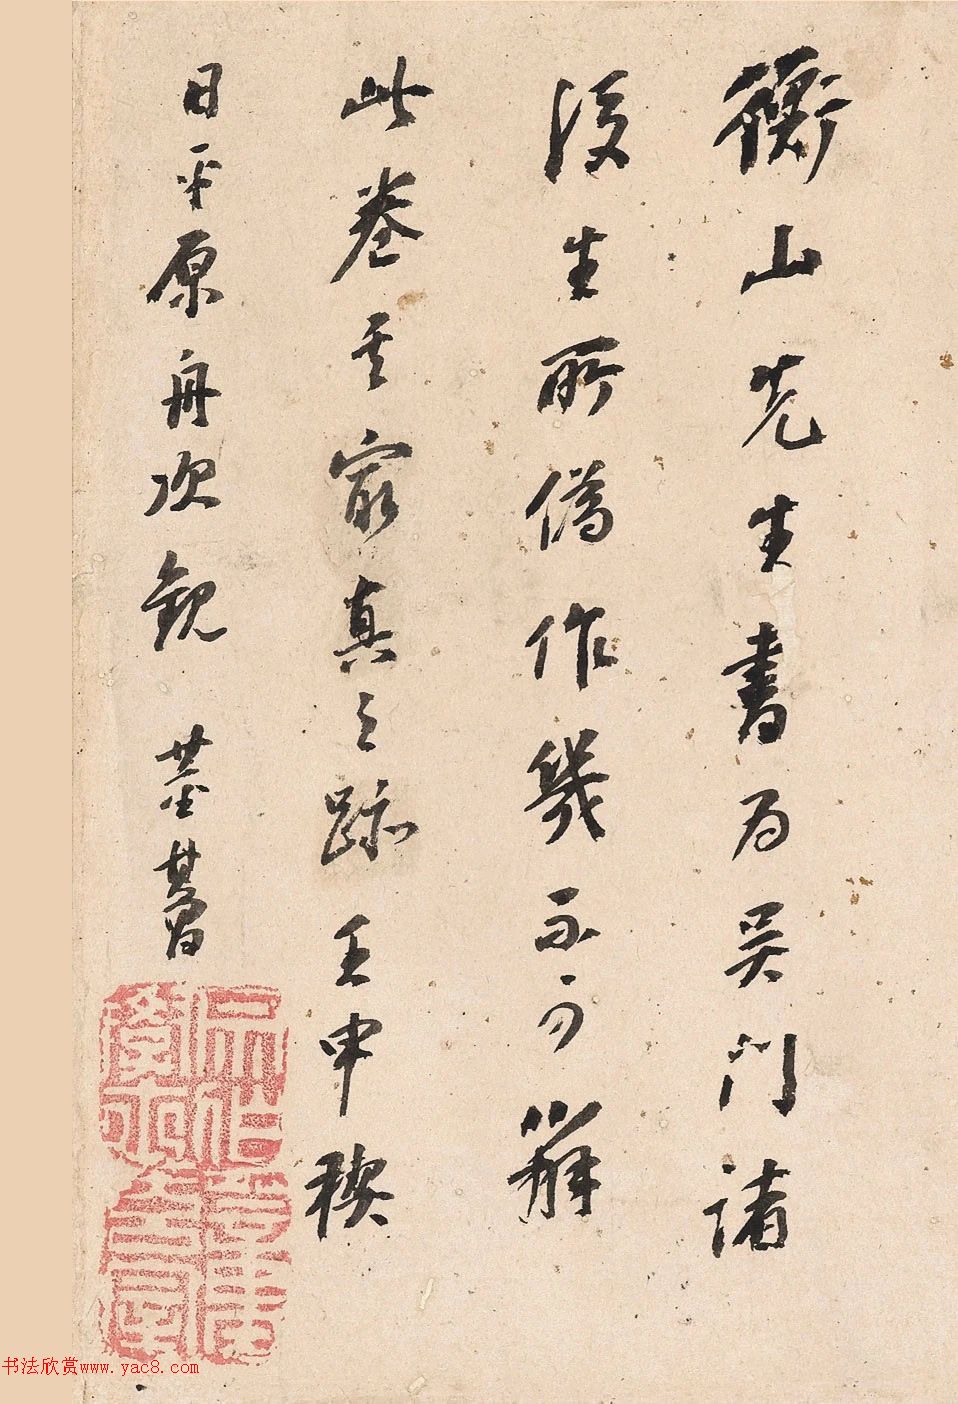 衡山先生書为吴門諸
後生所偽作幾不可辨
此卷其最真之跡壬申禊
日平原舟次觀 董其昌
书法欣赏www.yac8.com